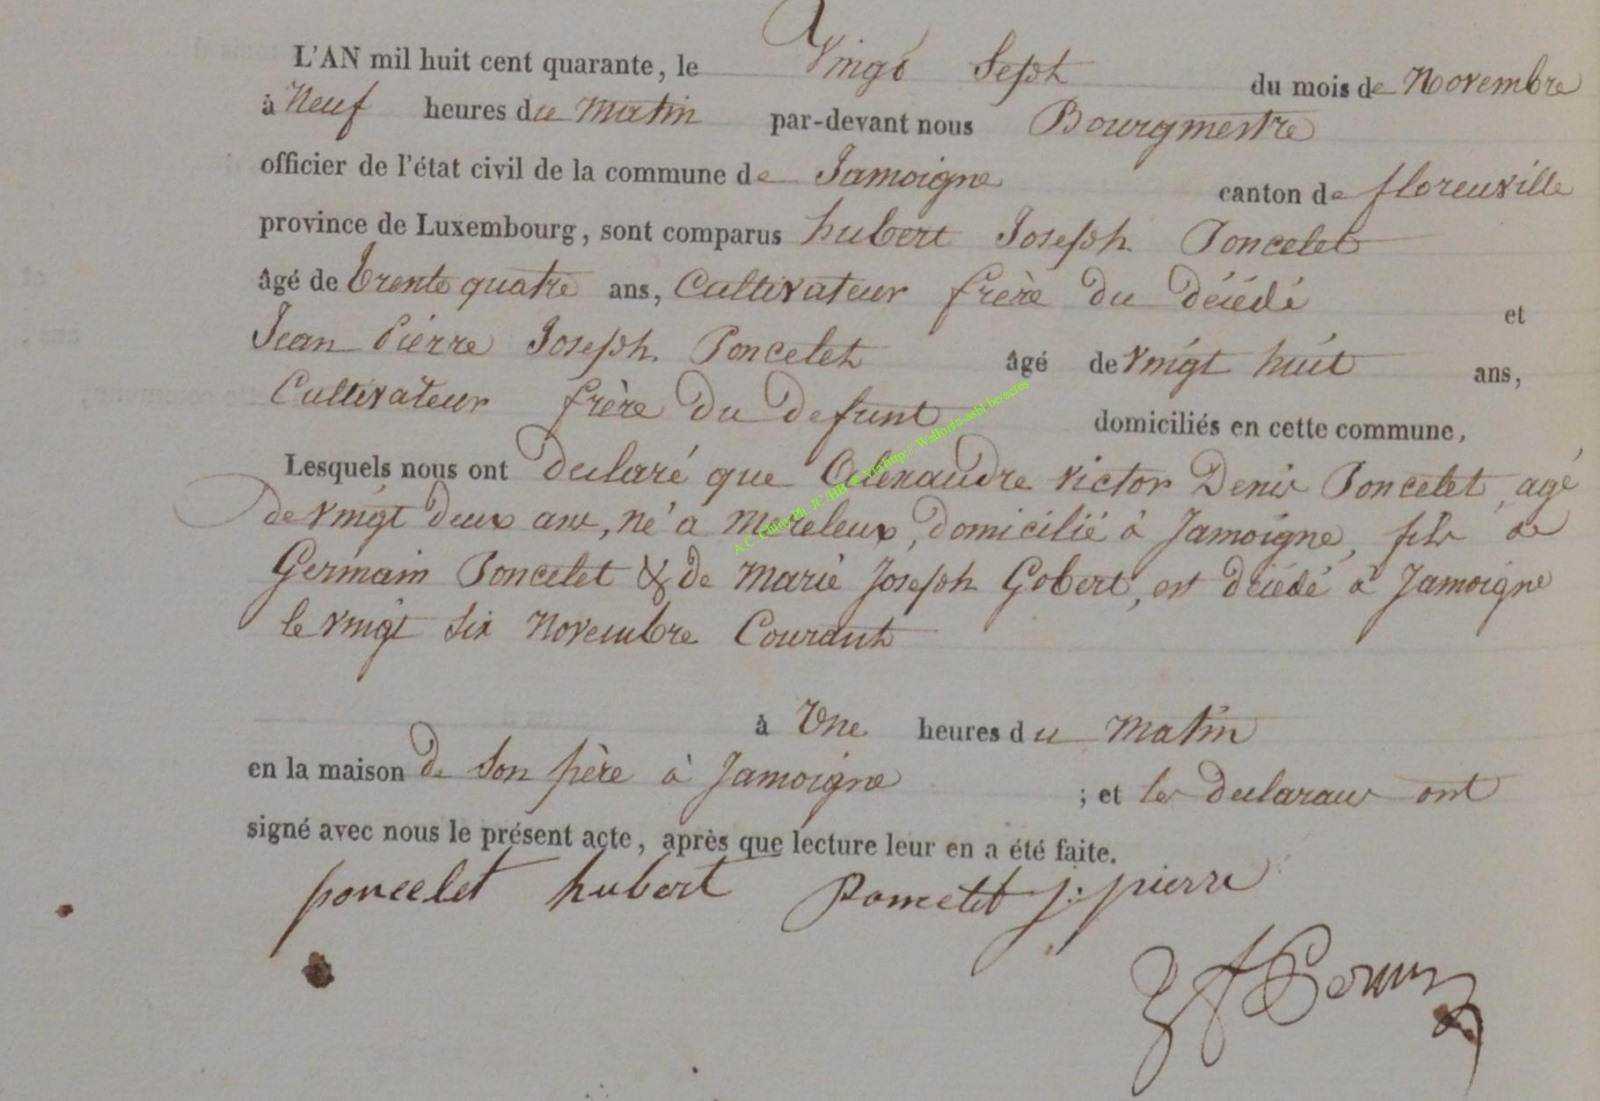 L'AN mil huit cent quarante, le Vingt Sept du mois de Novembre
à Neuf heures du Matin par-devant nous Bourgmestre
officier de l'état civil de la commune de Jamoigne canton de florenville
province de Luxembourg, sont comparus hubert Joseph Poncelet
âgé de trente quatre ans, Cultivateur frère du décédé et
Jean Pierre Joseph Poncelet âgé de vingt huit ans,
Cultivateur frère du defunt domiciliés en cette commune,
Lesquels nous ont declaré que Alexandre victor Denis Poncelet, agé
de vingt deux ans, né à domicilié à Jamoigne, fils de
Germain Poncelet & de Marie Joseph Gobert, est décédé à Jamoigne
le vingt six Novembre Courant
à Une heures du Matin
en la maison de Son père à Jamoigne ; et les declarans ont
signé avec nous le présent acte, après que lecture leur en a été faite.
poncelet hubert Poncelet j: pierre